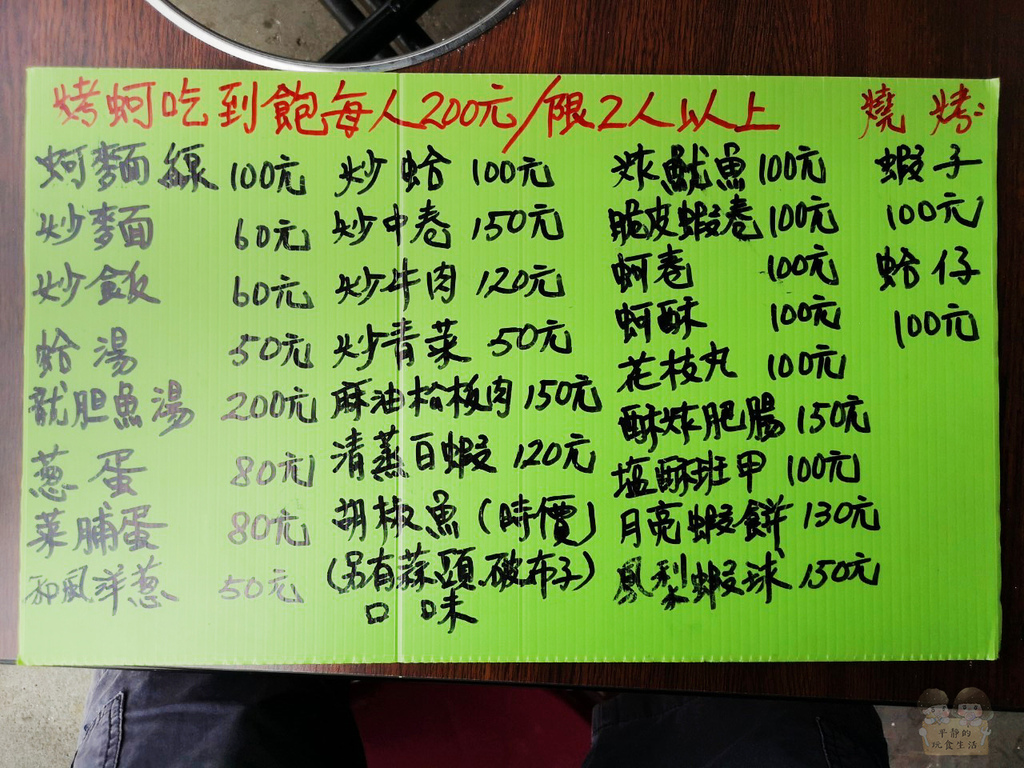 烤蚵吃到飽每人200元/限2人以上
蚵麵線 100元
炒麵 60元
炒飯 60元
蛤湯 50元
龍胆魚湯 200元
蔥蛋 80元
菜脯蛋 80元
和風洋蔥 50元
炒蛤 100元
炒中卷 150元
炒牛肉 120元
炒青菜 50元
麻油松板肉 150元
清蒸白蝦 120元
胡椒魚(時價)
(另有蒜頭.破布子)
口 口味
炸魷魚 100元
脆皮蝦卷 100元
蚵卷 100元
蚵酥 100元
花枝丸 100元
酥炸肥腸 150元
塩酥班甲 100元
月亮蝦餅 130元
鳳梨蝦球 150元
燒烤:
蝦子
100元
蛤仔
100元
平靜的
玩食生活